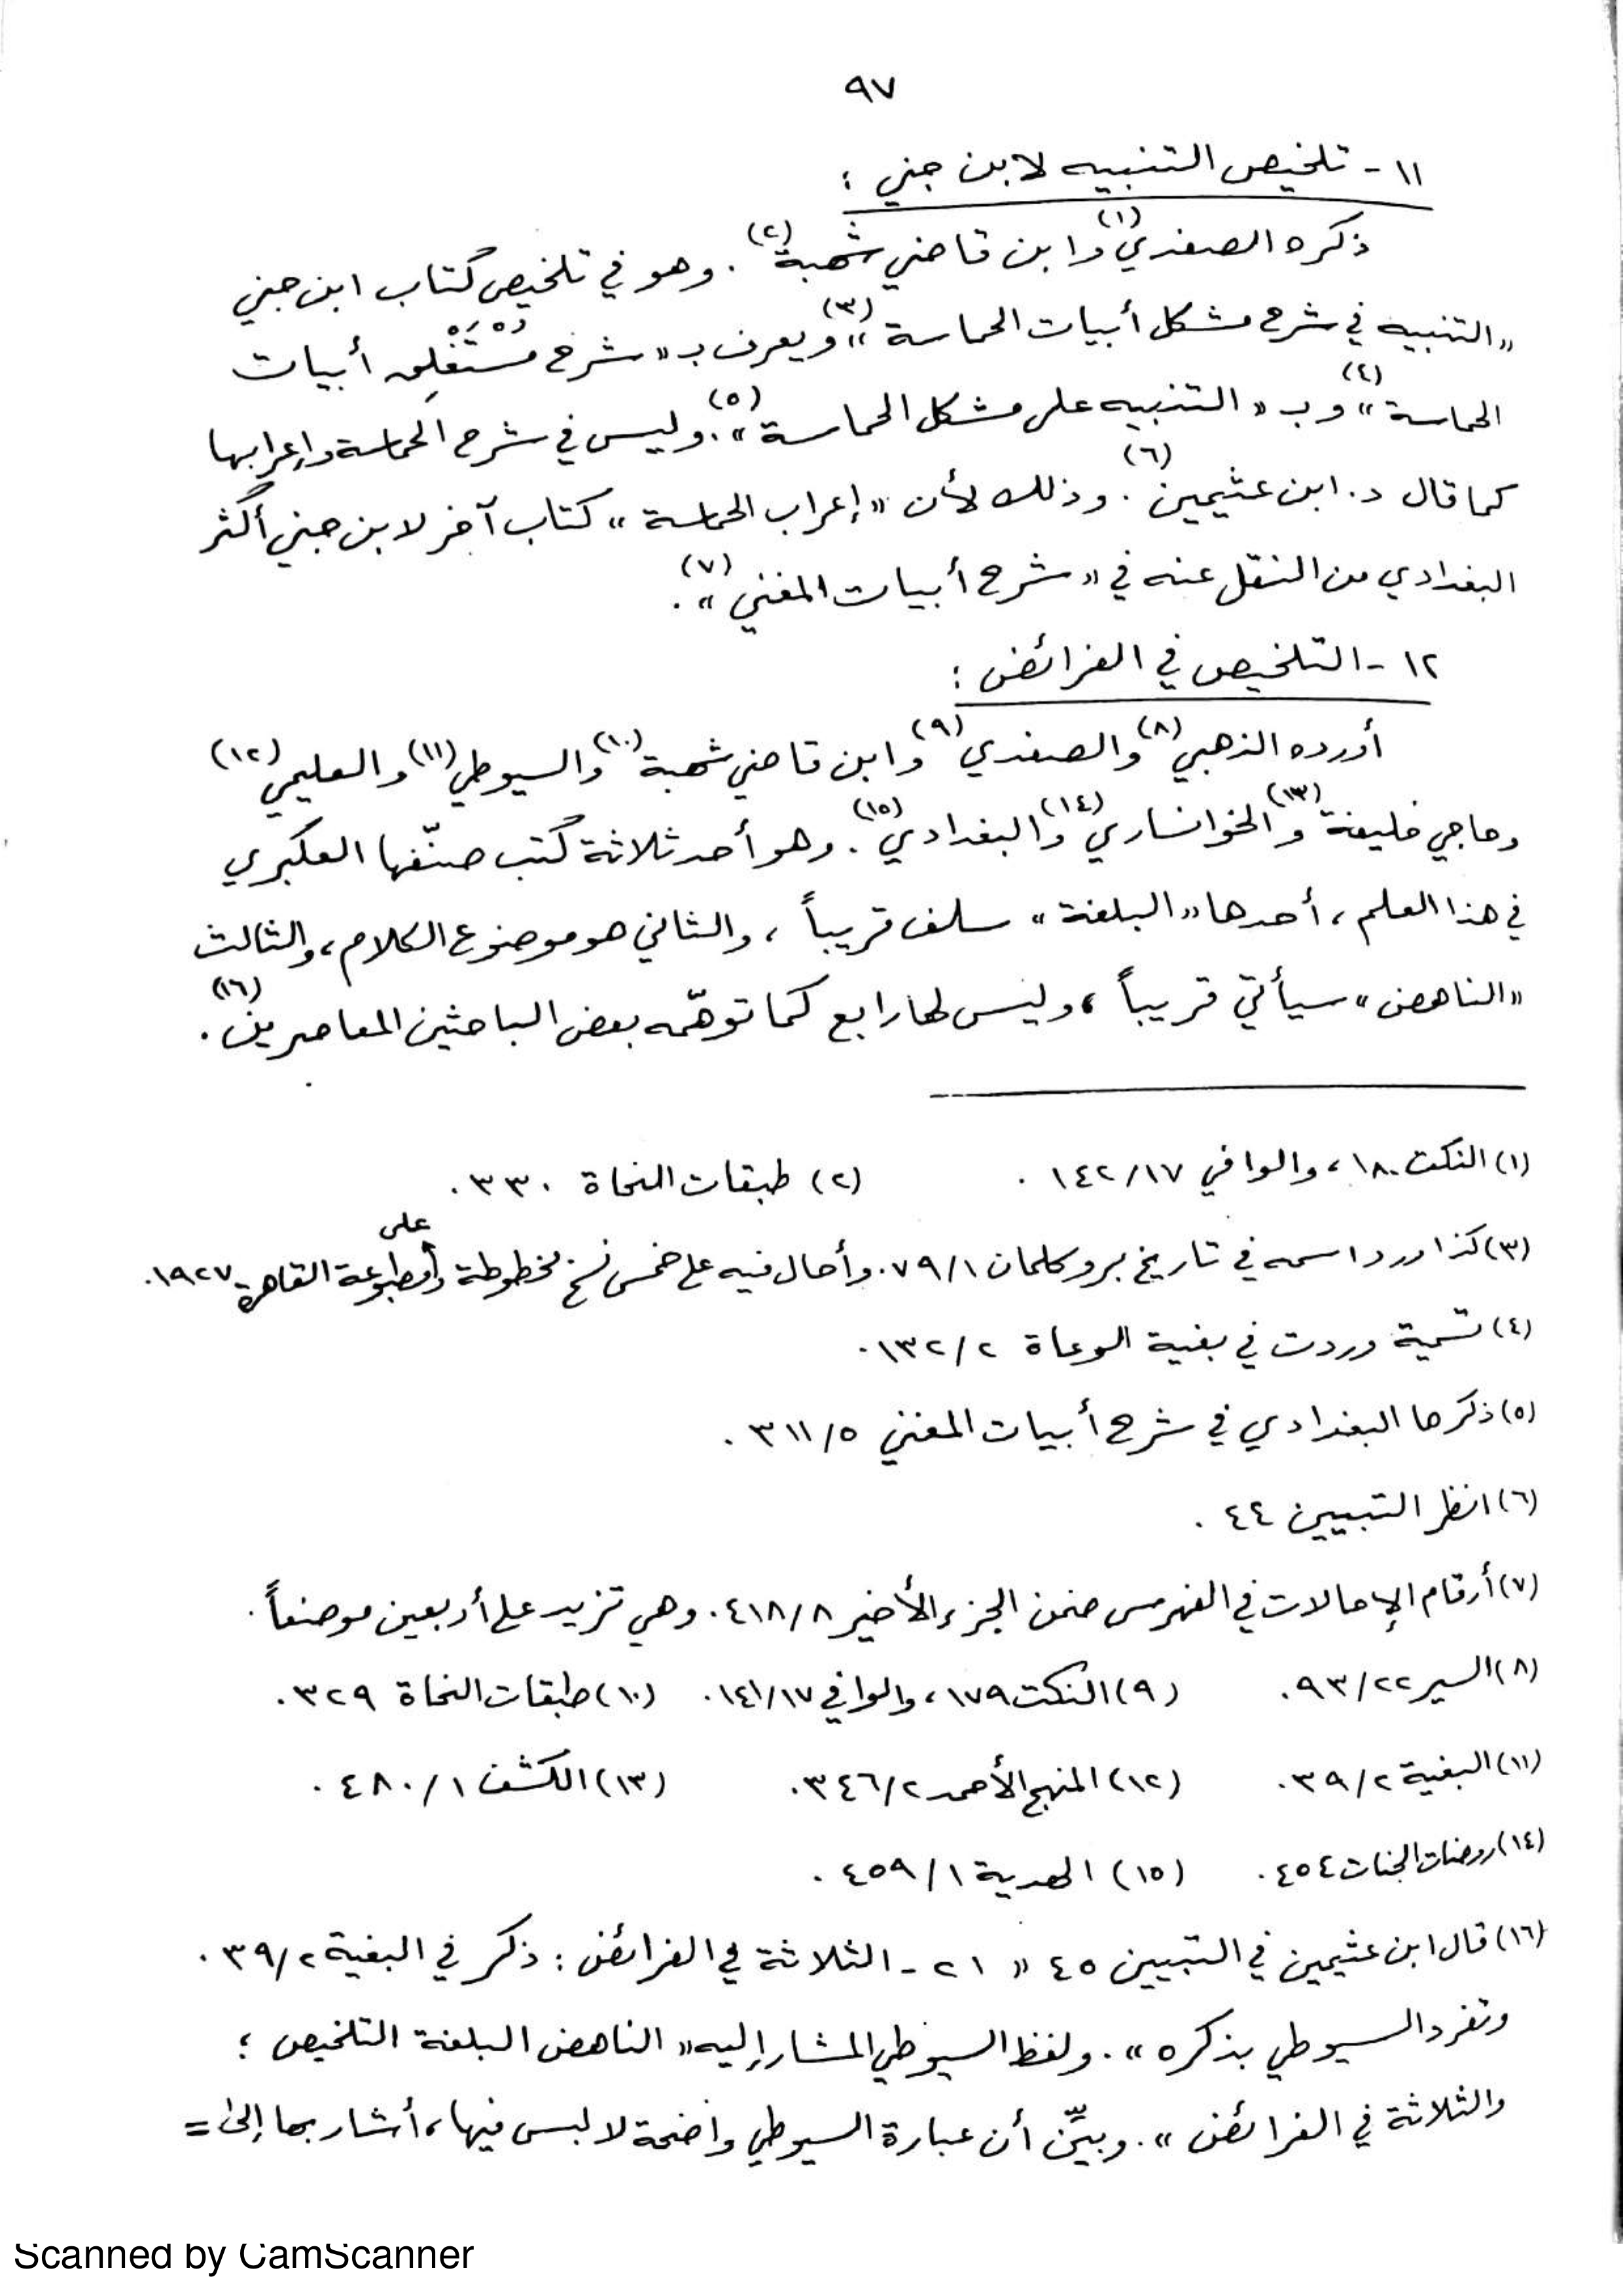 ٩٧
١١ - تلخيص التنبيه لابن جني :
ذكره الصفدي(١) وابن قاضي شهبة(٢) . وهو في تلخيص كتاب ابن جني
«التنبيه في شرح مشكل أبيات الحماسة»(٣) ويعرف بـ «شرح مُسْتَغْلِق أبيات
الحماسة»(٤) وبـ «التنبيه على مشكل الحماسة»(٥). وليس في شرح الحماسة وإعرابها
كما قال د. ابن عثيمين(٦) . وذلك لأن «إعراب الحماسة» كتاب آخر لابن جني أكثر
البغدادي من النقل عنه في «شرح أبيات المغني»(٧) .
١٢ - التلخيص في الفرائض :
أورده الذهبي(٨) والصفدي(٩) وابن قاضي شهبة(١٠) والسيوطي(١١) والعليمي(١٢)
وحاجي خليفة(١٣) والخوانساري(١٤) والبغدادي(١٥) . وهو أحد ثلاثة كتب صنّفها العكبري
في هذا العلم ، أحدها «البلغة» سلف قريباً ، والثاني هو موضوع الكلام ، والثالث
«الناهض» سيأتي قريباً ، وليس لها رابع كما توهّمه بعض الباحثين المعاصرين(١٦) .
(١) النكت ١٨٠ ، والوافي ١٤٢/١٧ . (٢) طبقات النحاة ٣٣٠ .
(٣) كذا ورد اسمه في تاريخ بروكلمان ٧٩/١. وأحال فيه على خمس نسخ مخطوطة وعلى مطبوعة القاهرة ١٩٢٧.
(٤) تسمية وردت في بغية الوعاة ١٣٢/٢ .
(٥) ذكرها البغدادي في شرح أبيات المغني ٣١١/٥ .
(٦) انظر التبيين ٤٤ .
(٧) أرقام الإحالات في الفهرس ضمن الجزء الأخير ٤١٨/٨. وهي تزيد على أربعين موضعاً .
(٨) السير ٩٣/٢٢ . (٩) النكت ١٧٩ ، والوافي ١٤١/١٧ . (١٠) طبقات النحاة ٣٢٩ .
(١١) البغية ٣٩/٢ . (١٢) المنهج الأحمد ٣٤٦/٢ . (١٣) الكشف ٤٨٠/١ .
(١٤) روضات الجنات ٤٥٤ . (١٥) الهدية ٤٥٩/١ .
(١٦) قال ابن عثيمين في التبيين ٤٥ «٢١ - الثلاثة في الفرائض : ذكر في البغية ٣٩/٢ .
وتفرد السيوطي بذكره» . ولفظ السيوطي المشار إليه «الناهض البلغة التلخيص ؛
والثلاثة في الفرائض» . وبيِّن أن عبارة السيوطي واضحة لا لبس فيها ، أشار بها إلى =
Scanned by CamScanner